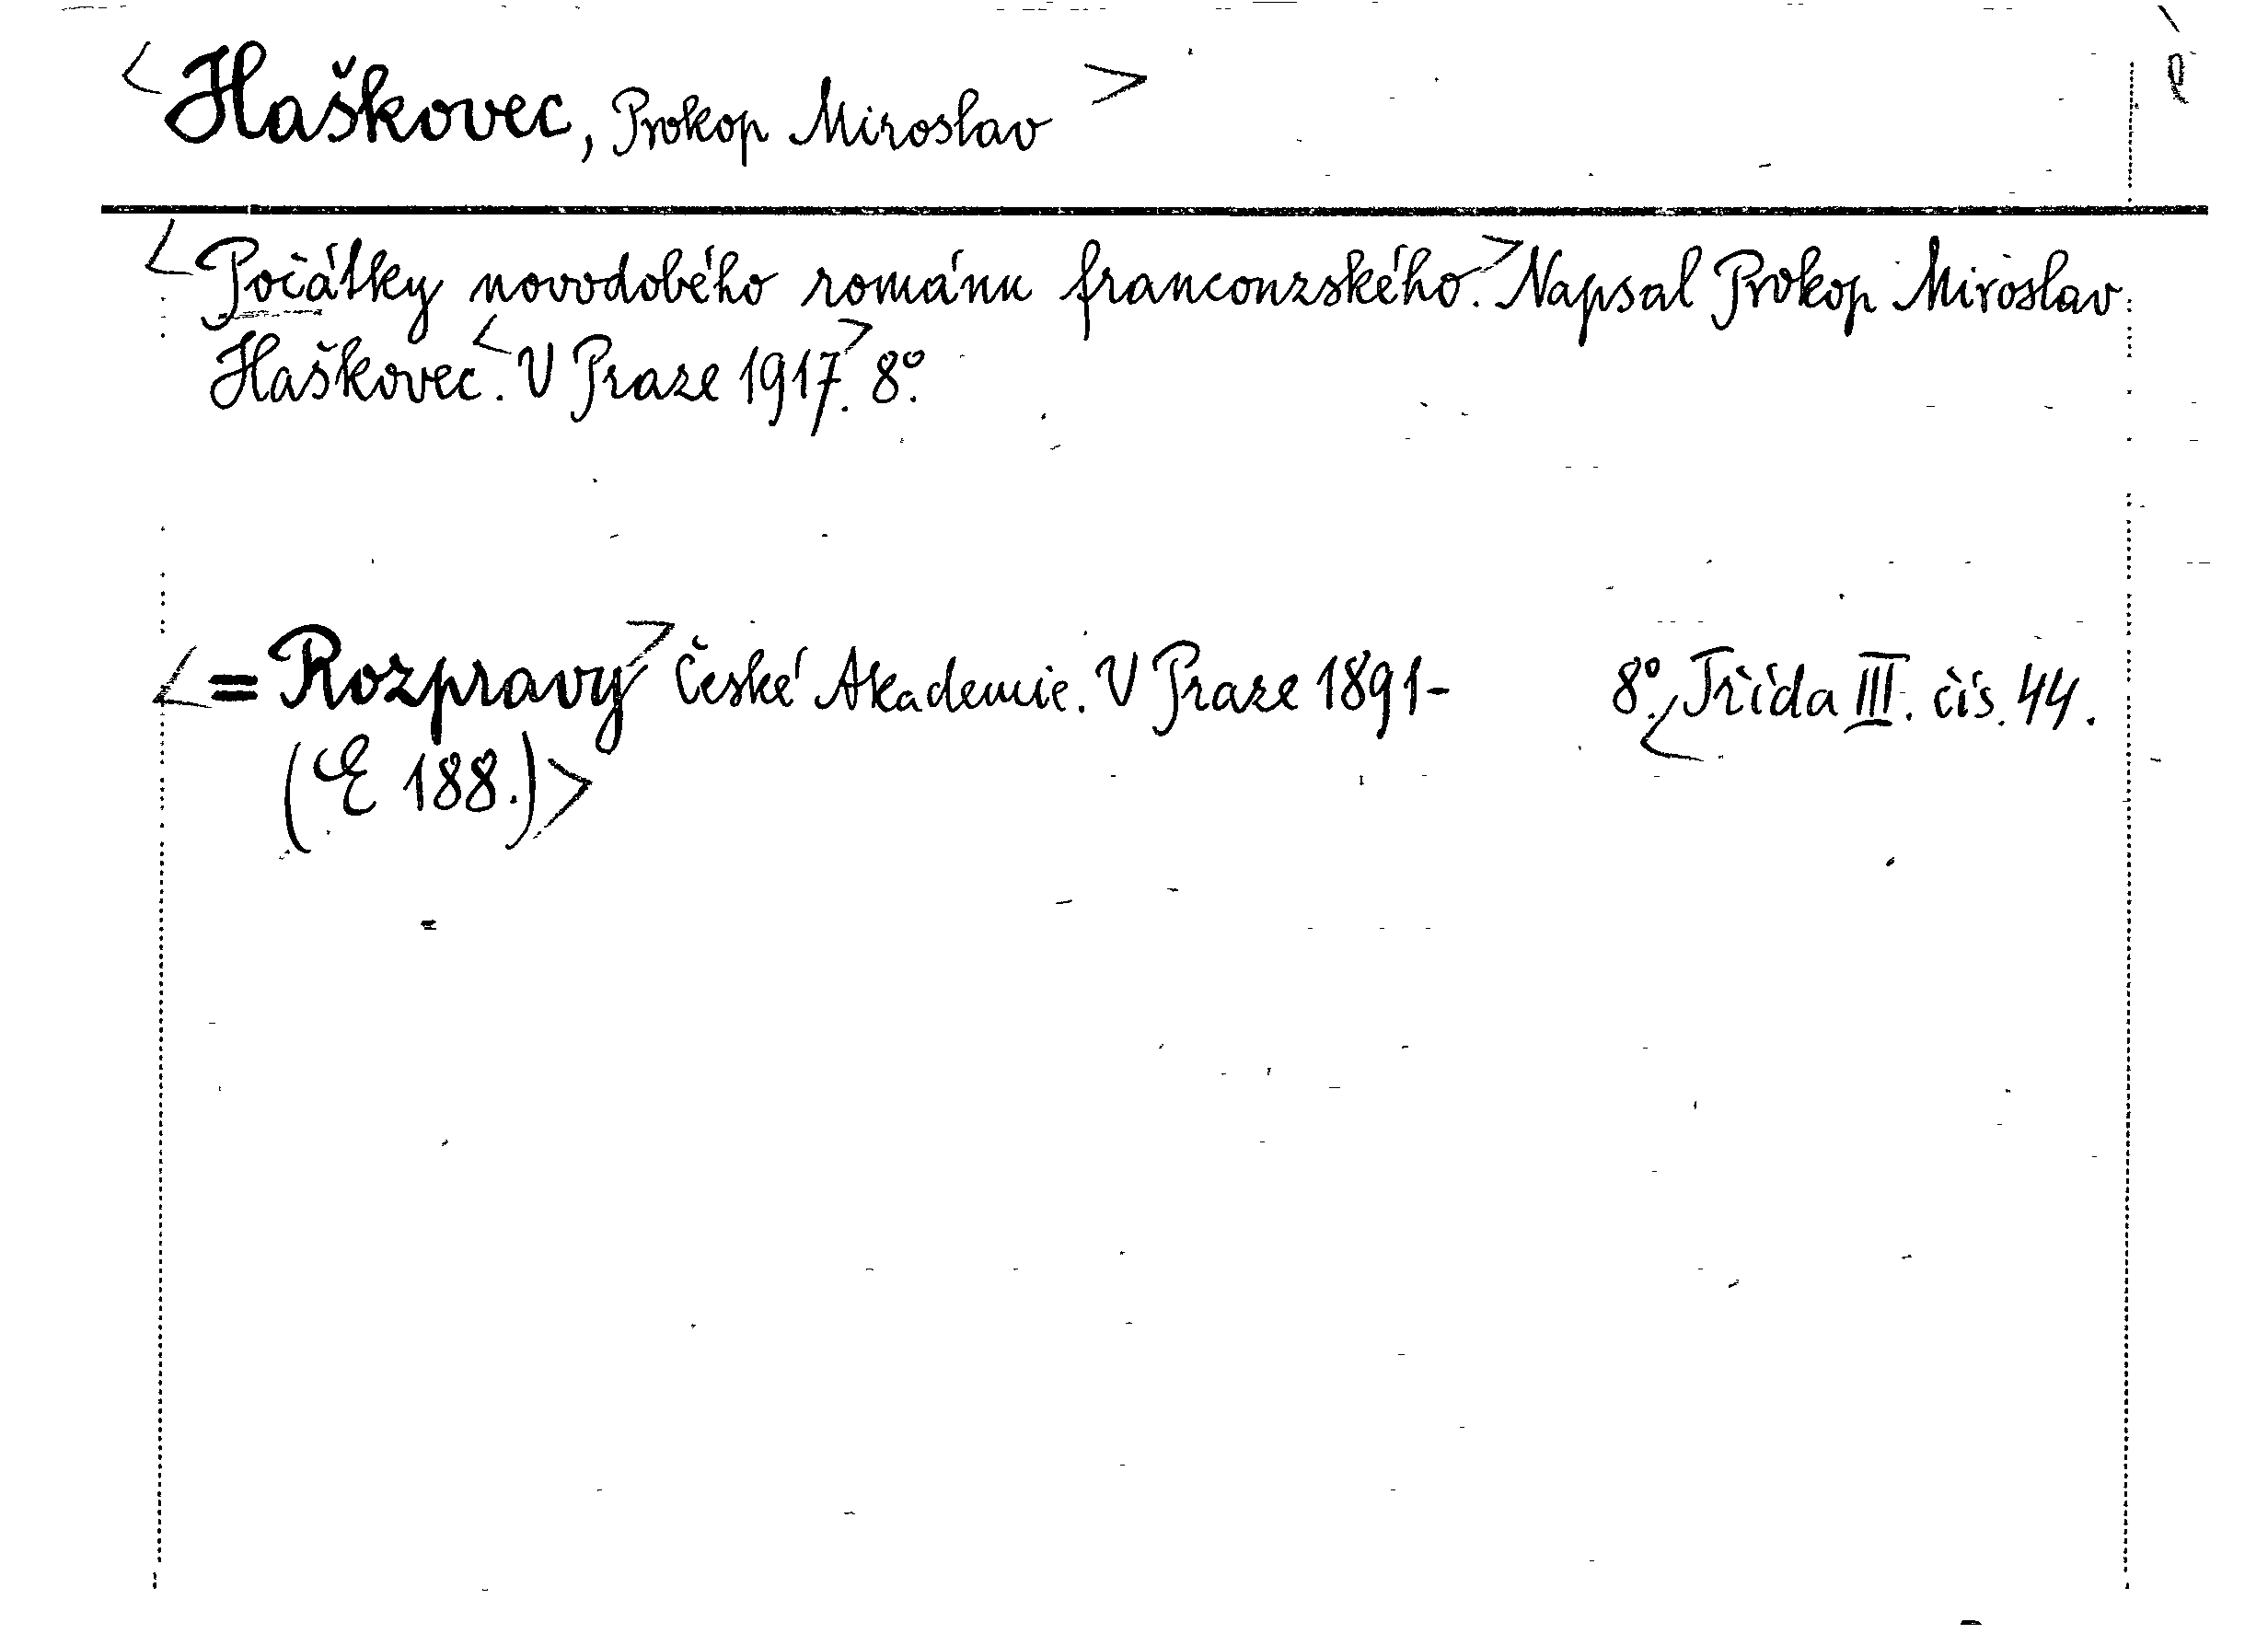 <Haškovec, Prokop Miroslav>
<Počátky novodobého románu francouzského.> Napsal Prokop Miroslav
Haškovec. <V Praze 1917.> 8°.
<= Rozpravy> České Akademie. V Praze 1891- 8°. <Třída III. čís. 44.
(E 188.)>